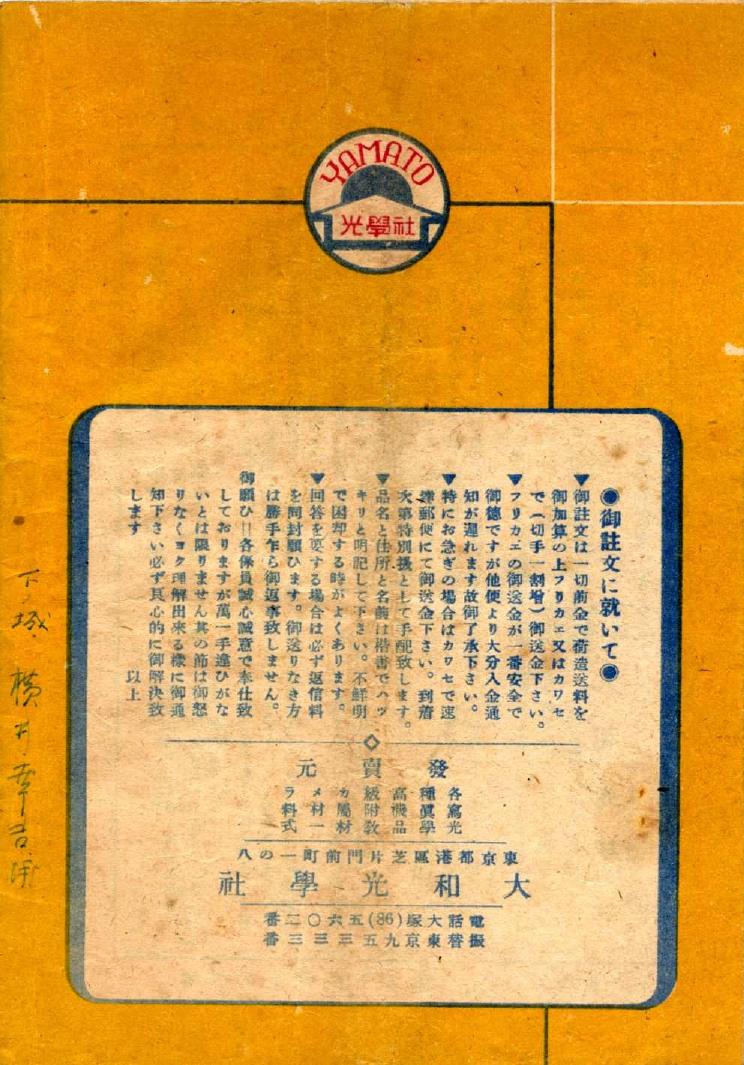 YAMATO
社學光
●御註文に就いて●
▼御註文は一切前金で荷造送料を
御加算の上フリカエ又はカワセ
で(切手一割增)御送金下さい。
▼フリカエの御送金が一番安全で
御徳ですが他便より大分入金通
知が遲れます故御了承下さい。
▼特にお急ぎの場合はカワセで速
達郵便にて御送金下さい。到着
次第特別扱として手配致します。
▼品名と住所と名前は楷書でハッ
キリと明記して下さい。不鮮明
で困却する時がよくあります。
▼回答を要する場合は必ず返信料
を同封願ひます。御送りなき方
は勝手乍ら御返事致しません。
御願ひ!!各係員誠心誠意で奉仕致
しておりますが萬一手違ひがな
いとは限りません其の節は御怒
りなくヨク理解出来る樣に御通
知下さい必ず良心的に御解決致
します 以上
元賣發
各種高級カメラ
寫眞機附屬材料
光學品敎材一式
東京都港區芝片門前町一の八
大和光學社
電話大塚(86)五六〇二番
振替東京九五三三三番
下城 横井幸吉